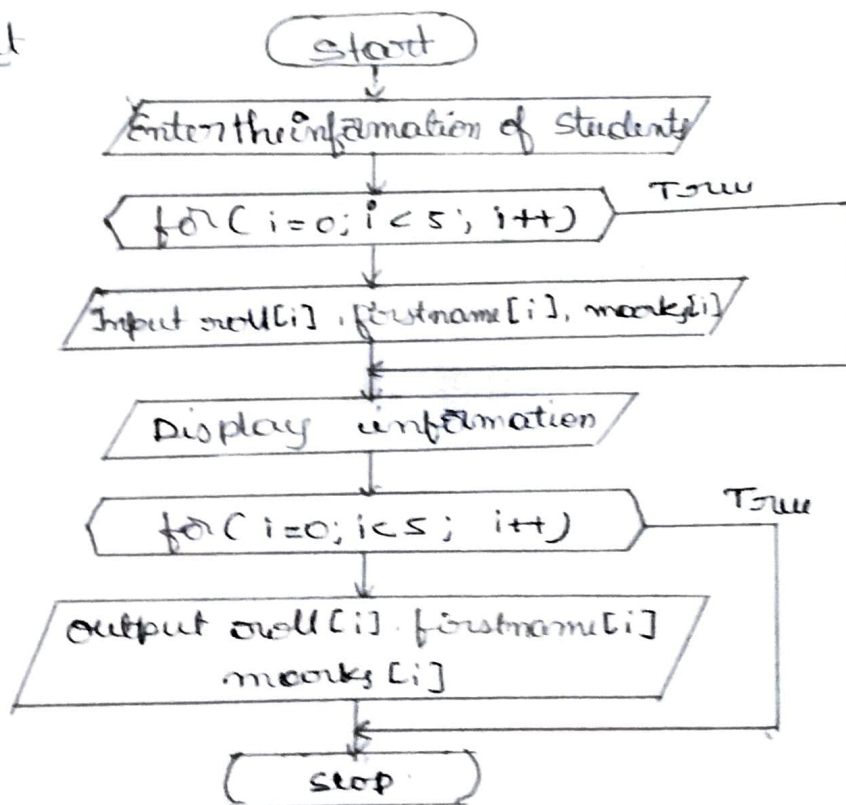 t
Start
Enter the infamation of students
for ( i=0; i < 5; i++)
True
Input roll[i], firstname[i], marks[i]
Display infamation
for ( i=0; i<5; i++)
True
output roll[i]. firstname[i]
marks [i]
stop